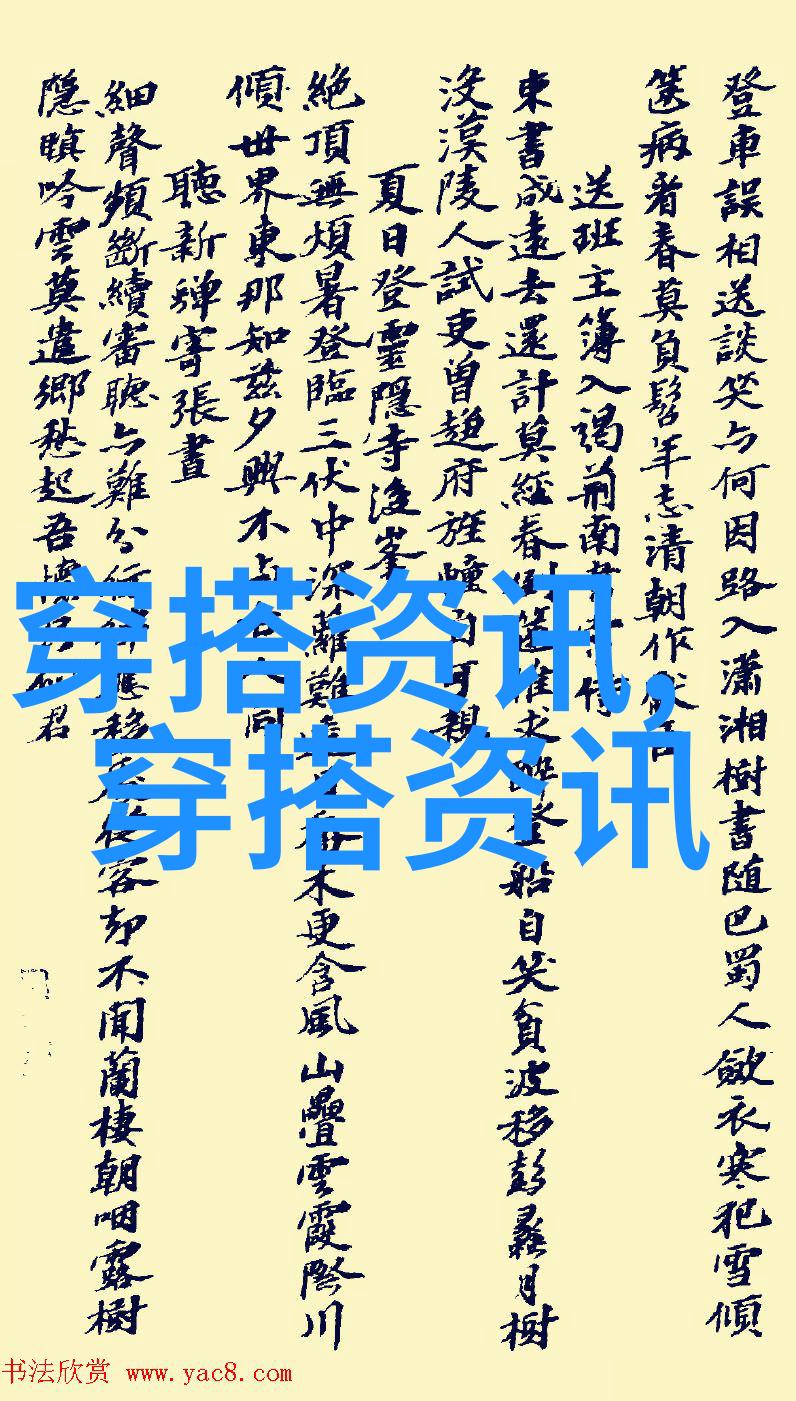 登車誤相送談笑亦何因路入瀟湘樹書隨巴蜀人斂衣寒犯雪傾
篋病看春莫負髫年志清朝作獻
送班主簿入謁荊南
東書成遠去還計莫經春倒篋唯求醉登船自笑貧波移彭蠡月樹
沒漢陵人試吏曾趨府旌幢自可親
夏日登靈隱寺後峯
絕頂無煩暑登臨三伏中深蘿難 木更含風山疊雲霞際川
傾世界東那知茲夕興不 同
聽新蟬寄張晝
細聲頻斷續審聽亦難分 移 客却不聞蘭棲朝咽露樹
隱暝吟雲莫遣鄉愁起吾懷 君
穿搭资讯,
穿搭资讯
书法欣赏 www.yac8.com